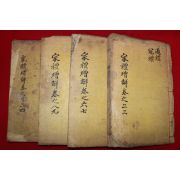 通禮
冠禮
家禮增解卷之二三
家禮增解卷之六七
家禮增解卷之八九
家禮增解卷之